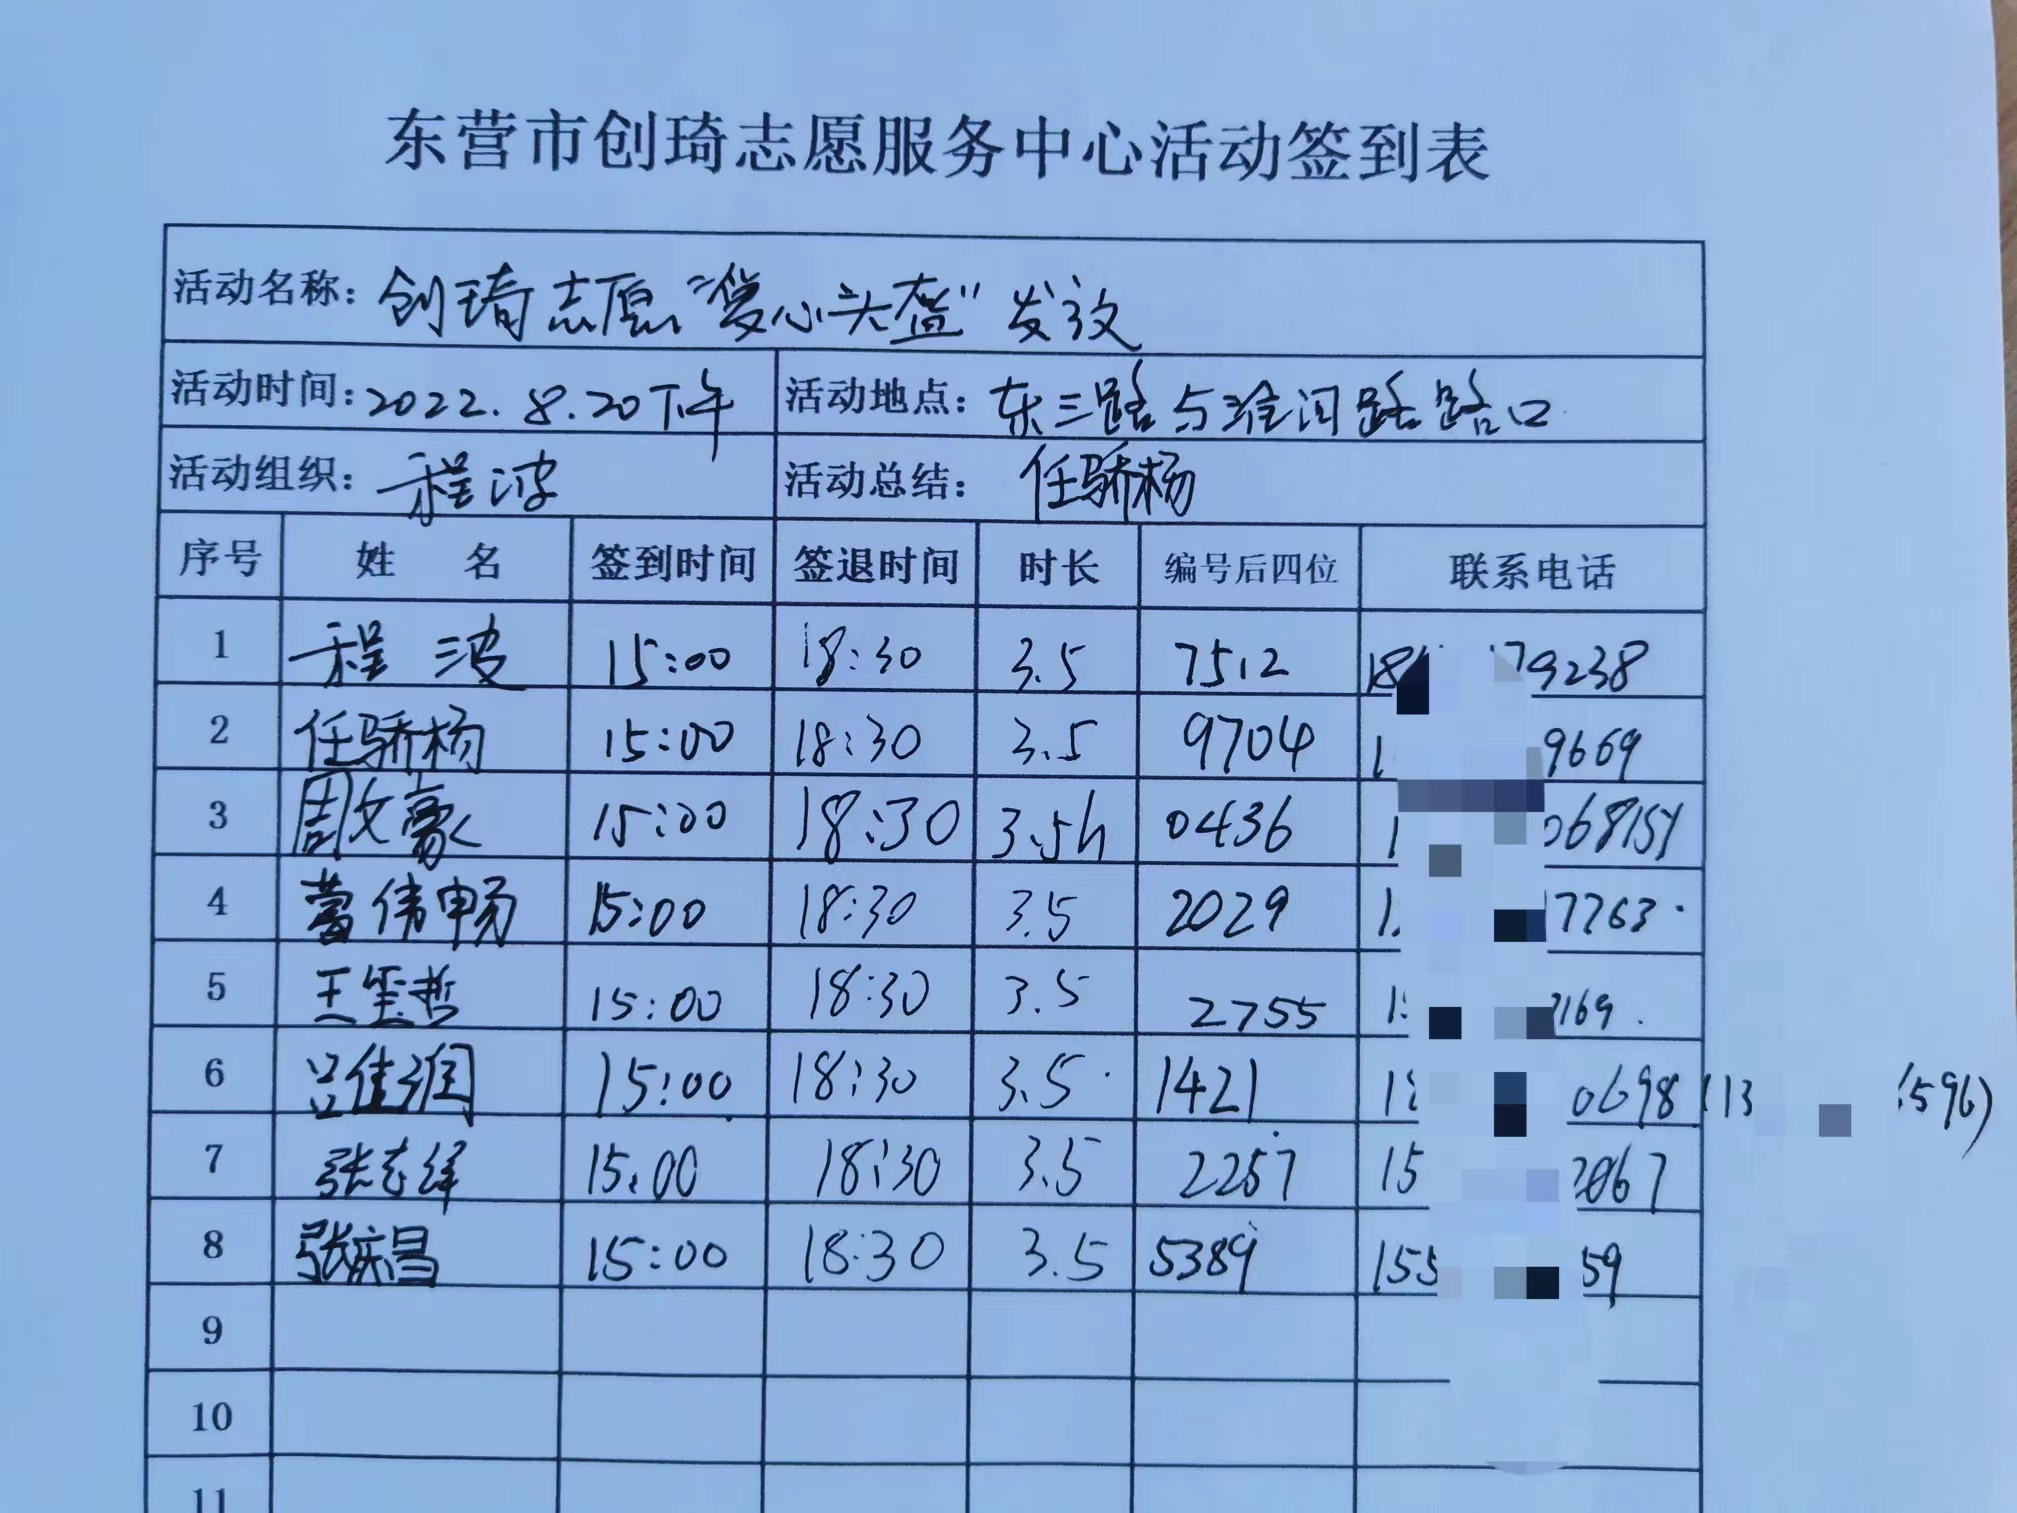 东营市创琦志愿服务中心活动签到表
活动名称：创琦志愿“爱心头盔”发放
活动时间：2022.8.20下午 活动地点：东三路与淮河路路口
活动组织：程波 活动总结：任骄杨
序号 姓 名 签到时间 签退时间 时长 编号后四位 联系电话
1 程波 15:00 18:30 3.5 7512 79238
2 任骄杨 15:00 18:30 3.5 9704 1 9669
3 周文豪 15:00 18:30 3.5h 0436 1 068151
4 伟畅 15:00 18:30 3.5 2029 1 7763.
5 王玺哲 15:00 18:30 3.5 2755 1 169.
6 吕佳润 15:00 18:30 3.5 1421 0698 (13 596)
7 张志 15:00 18:30 3.5 2257 15 067
8 张庆昌 15:00 18:30 3.5 5389 155 59
9
10
11